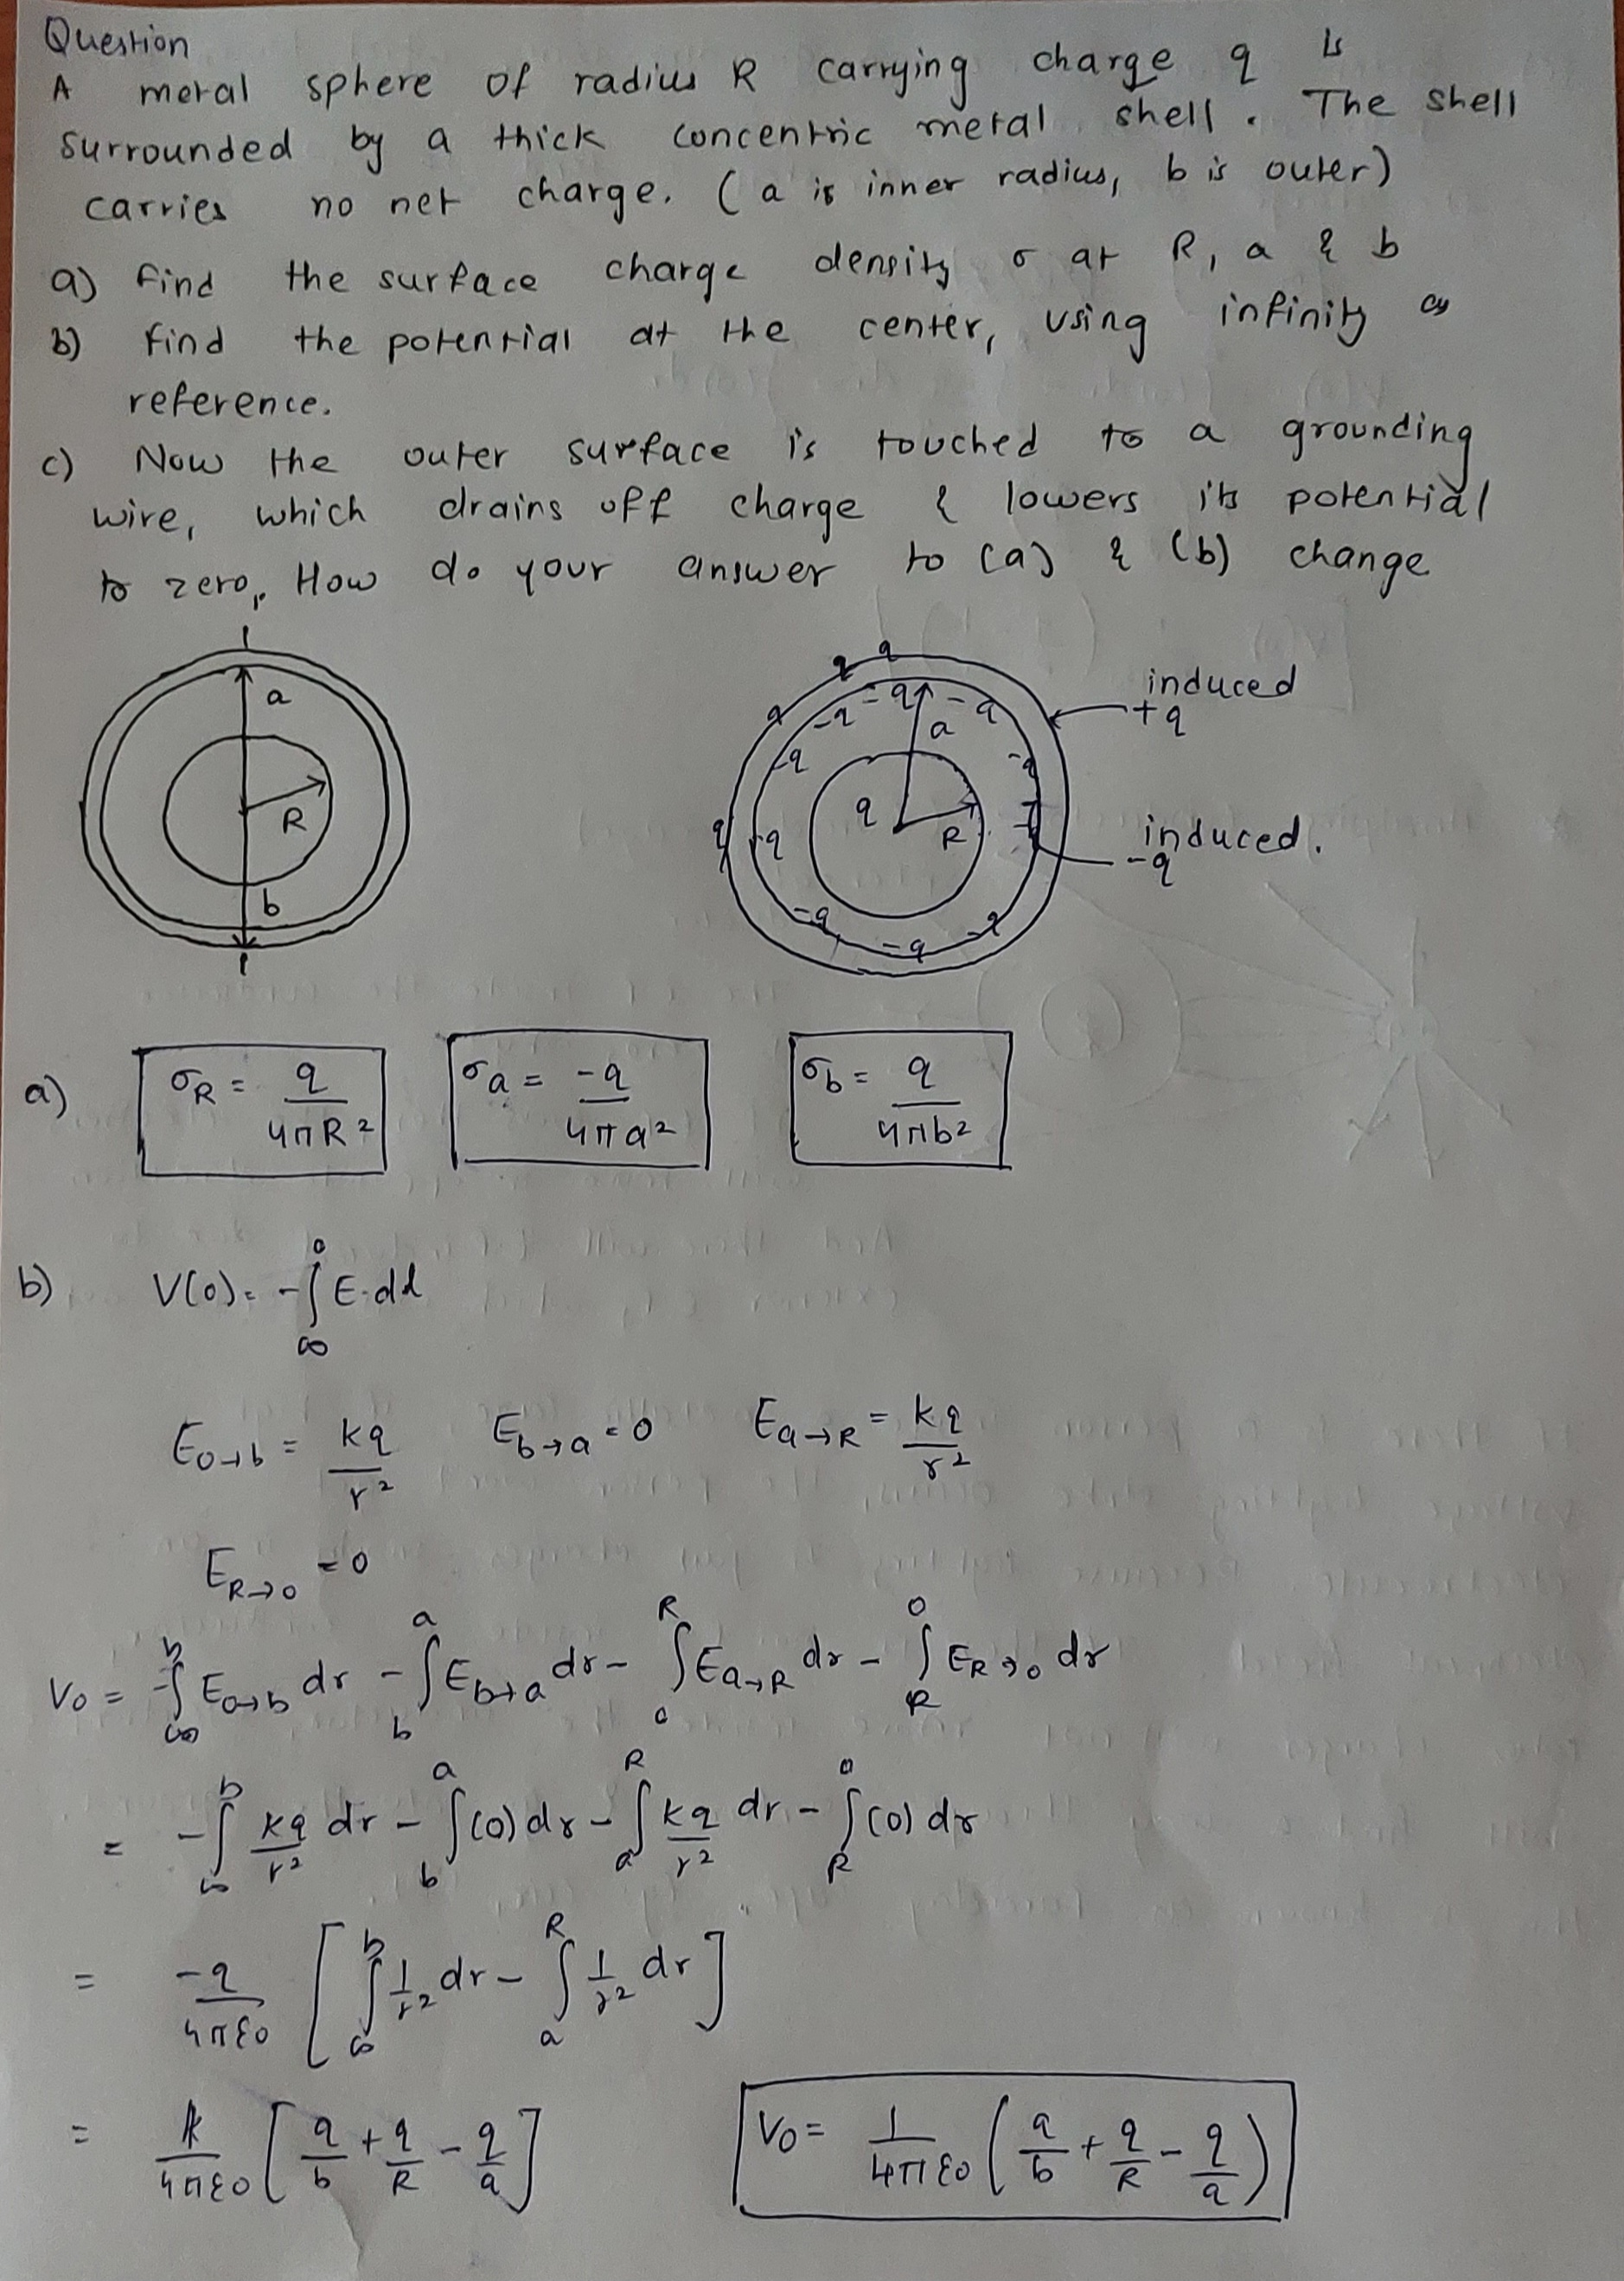 Question
A metal sphere of radius R carrying charge q is
surrounded by a thick concentric metal shell. The shell
carries no net charge. (a is inner radius, b is outer)
a) Find the surface charge density σ at R, a & b
b) Find the potential at the center, using infinity as
reference.
c) Now the outer surface is touched to a grounding
wire, which drains off charge & lowers its potential
to zero. How do your answer to (a) & (b) change
a
R
b
q q q q
-q -q -q -q -q -q -q -q -q
a
q
R
induced
+q
induced.
-q
a) σR = q/4πR² σa = -q/4πa² σb = q/4πb²
b) V(0) = -∫∞→0 E·dl
E0→b = kq/r² Eb→a = 0 Ea→R = kq/r²
ER→0 = 0
V0 = -∫∞→b E0→b dr - ∫b→a Eb→a dr - ∫a→R Ea→R dr - ∫R→0 ER→0 dr
= -∫∞→b kq/r² dr - ∫b→a (0) dr - ∫a→R kq/r² dr - ∫R→0 (0) dr
= -q/4πε0 [∫∞→b 1/r² dr - ∫a→R 1/r² dr]
= /4πε0 [q/b + q/R - q/a] V0 = 1/4πε0 (q/b + q/R - q/a)